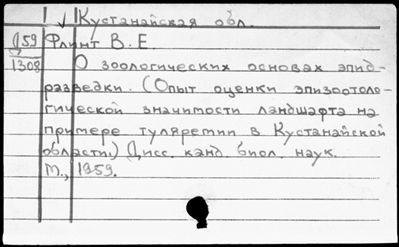 √ Кустанайская обл.
Д59 Флинт В. Е.
1308 О зоологических основах эпид-
разведки. (Опыт оценки эпизоотоло-
гической значимости ландшафта на
примере туляремии в Кустанайской
области) (Дисс. канд. биол. наук.
М., 1959.